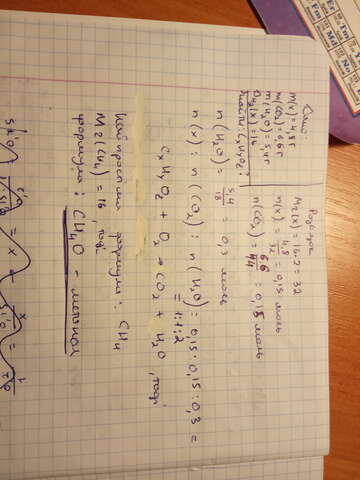 Дано:
m(x) = 4,8 г
m(CO₂) = 6,6 г
m(H₂O) = 5,4 г
(x) = 16
Найти: CxHyOz?
Mг(x) = 16·2 = 32
n(x) = 4,8/32 = 0,15 моль
n(CO₂) = 6,6/44 = 0,15 моль
n(H₂O) = 5,4/18 = 0,3 моль
n(x) : n(CO₂) : n(H₂O) = 0,15 : 0,15 : 0,3 =
= 1:1:2
CxHyOz + O₂ → CO₂ + H₂O, тогда
формула : CH₄
Mг(CH₄) = 16, тогда
формула : CH₄O - метанол
Er
Tm
Fm
Md
No